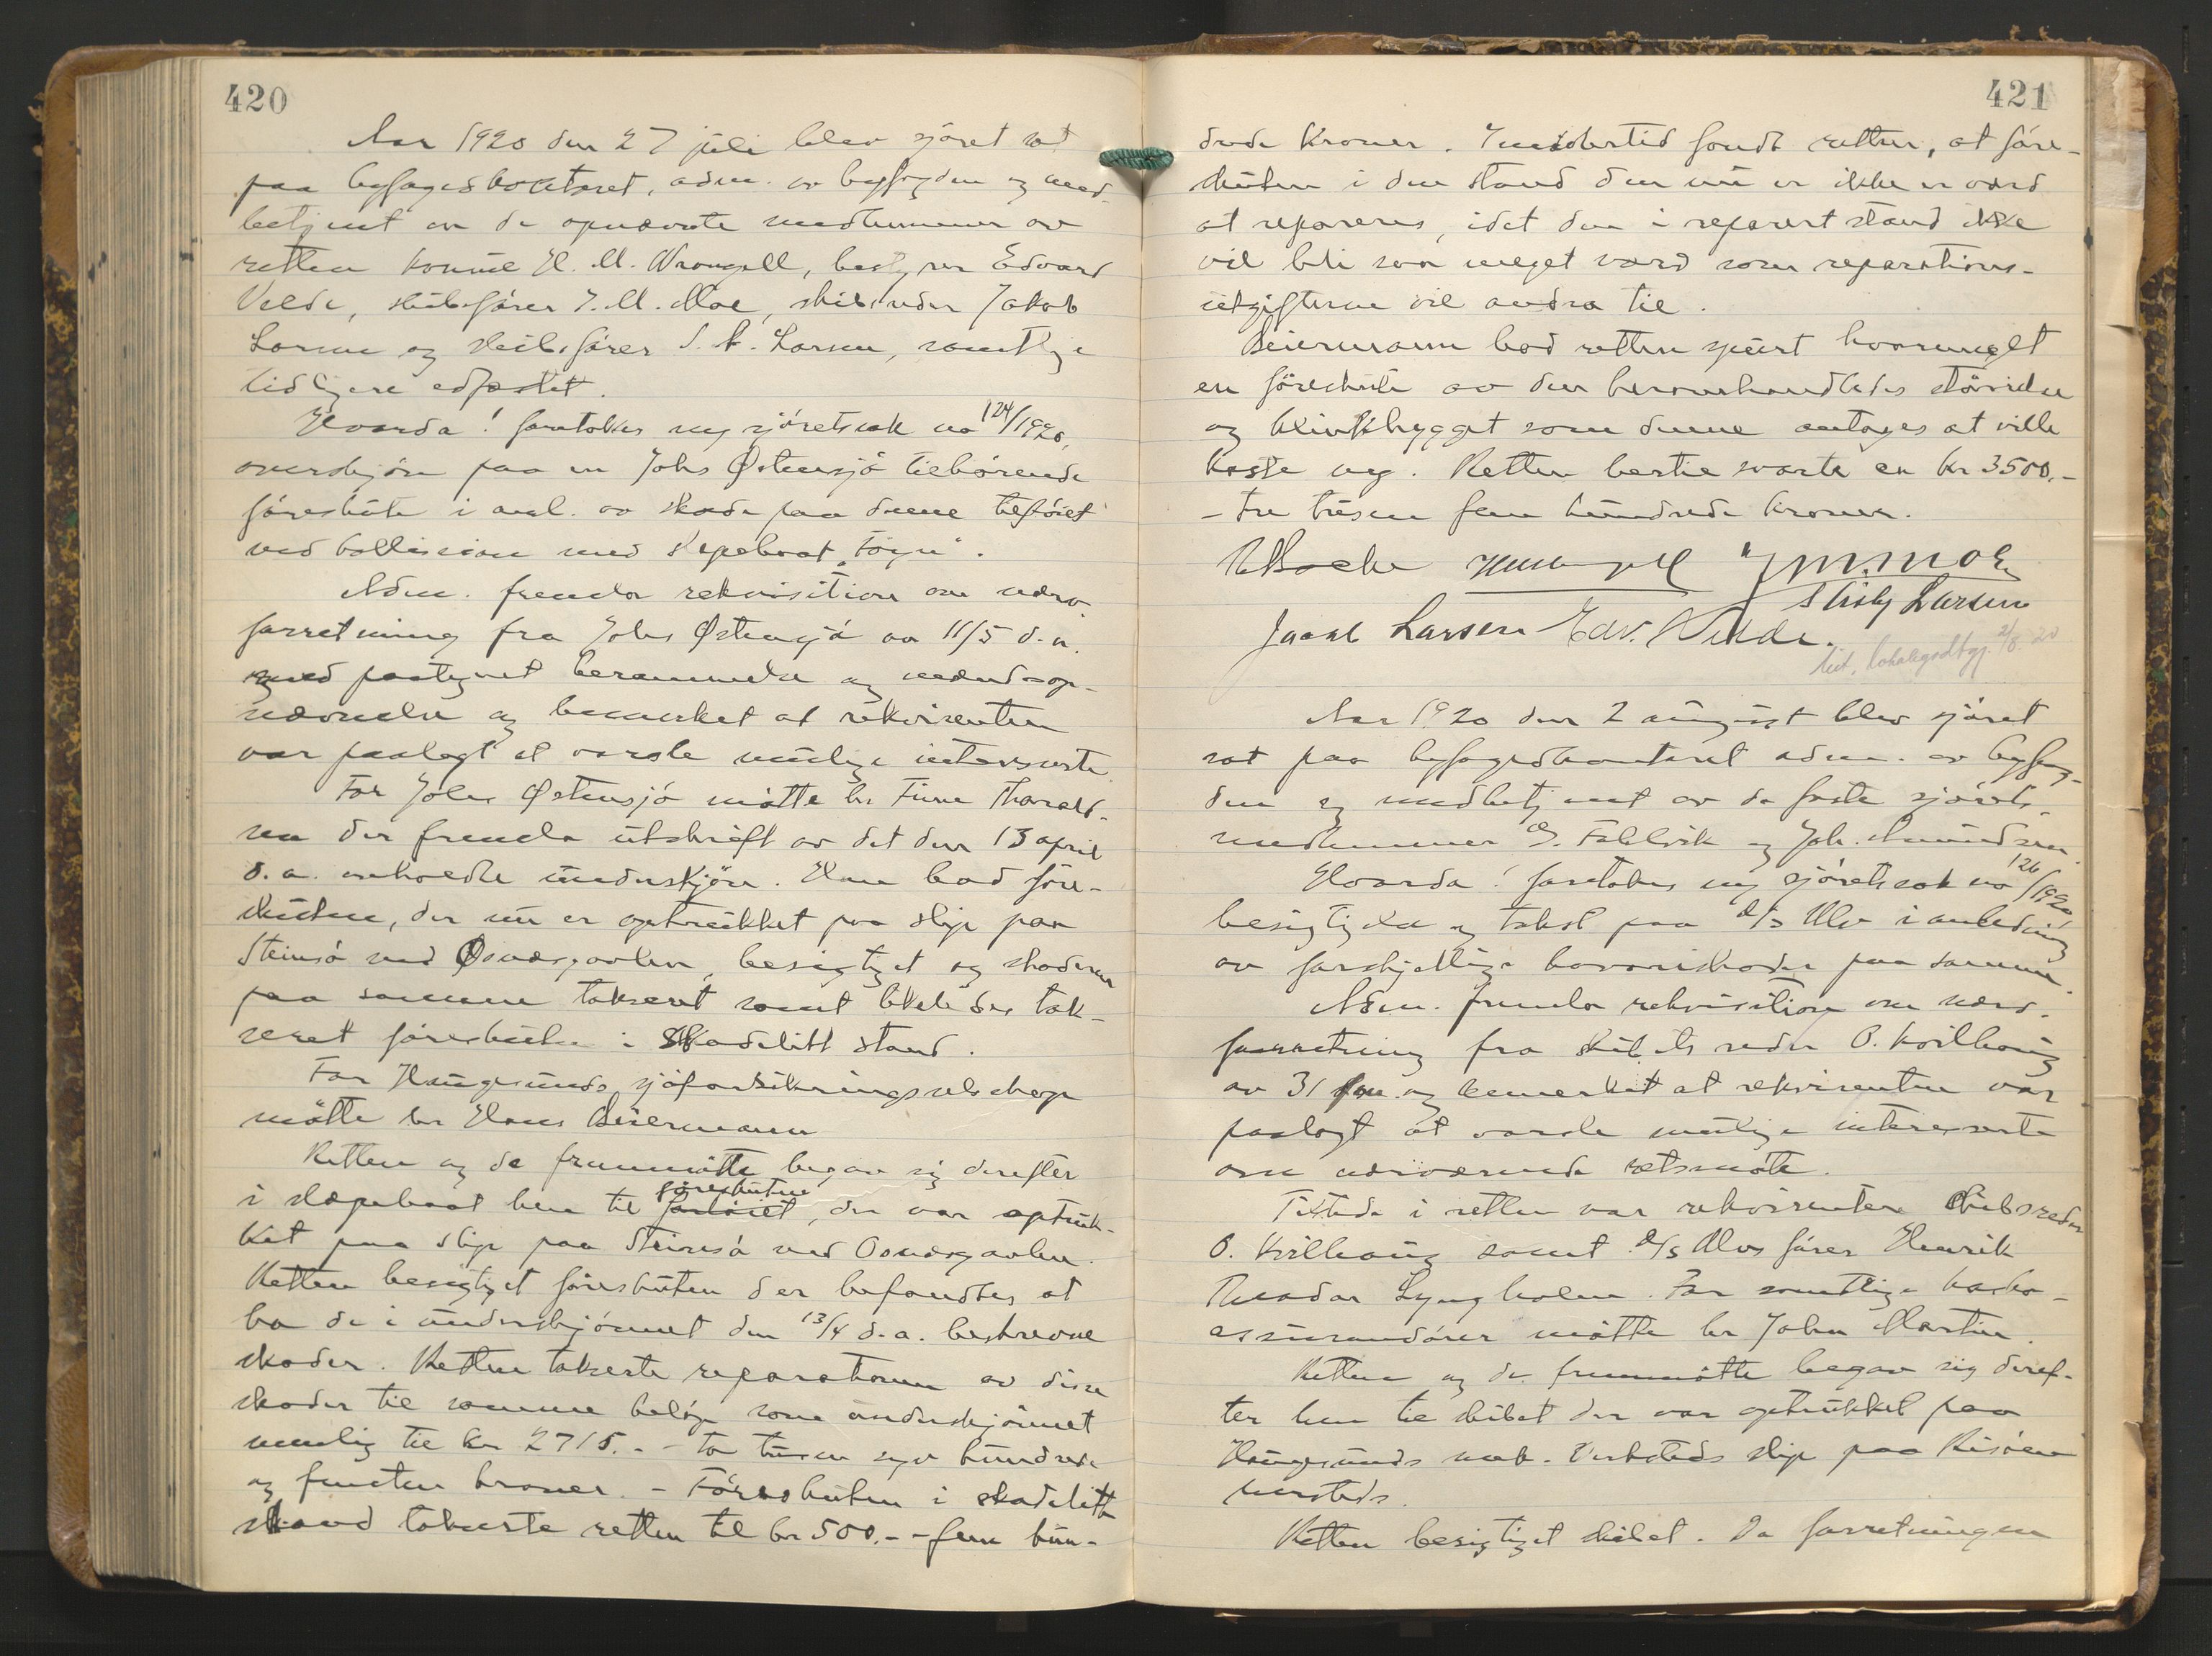 420
Aar 1920 den 27 juli blev sjöret sat
paa byfogedkontoret, adm. av byfogden og med-
betjent av de opnævnte medlemmer av
retten konsul H. M. Wrangell, bestyrer Edvard
Velde, skibsförer J. M. Moe, skibsreder Jakob
Larsen og skibsförer S. A. Larsen, samtlige
tidligere edfæstet.
Hvorda! foretokes ny sjöretssak no 124/1920,
overskjön paa en Johs Østensjö tilhörende
föreskute i anl. av skade paa denne tilföiet
ved kollision med slepebaat „Töger".
Adm. fremla rekvisition om nærv.
forretning fra Johs Østensjö av 11/5 d.a.
med paategnet berammelse og mænds-op-
nævnelse og bemerket at rekvirenten
var paalagt at varsle mulige interesserte.
For Johs Østensjö mötte hr Finn Thorald-
sen der fremla utskrift av det den 13 april
d.a. avholdte underskjön. Han bad före-
skuten, der nu er optrukket paa slip paa
Steinsö ved Osnesgavlen, besigtiget og skaderne
paa samme taksert samt likeledes tak-
seret föreskuten i skadelidt stand.
For Haugesunds sjöforsikringsselskap
mötte hr Hans Beiermann
Retten og de fremmötte begav sig derefter
i slæpebaat hen til fartöiet föreskuten, der var optruk-
ket paa slip paa Steinsö ved Osnesgavlen.
Retten besigtiget föreskuten der befandtes at
ha de i underskjönnet den 13/4 d.a. beskrevne
skader. Retten takserte reparationen av disse
skader til samme belöp som underskjönnet
nemlig til kr 2715.- - to tusen syv hundrede
og femten kroner. - Föreskuten i skadelidt
stand takserte retten til kr 500.- - fem hun-
421
drede kroner. Imidlertid fandt retten, at före-
skuten i den stand den nu er ikke er værd
at repareres, idet den i reparert stand ikke
vil bli saa meget værd som reparations-
utgifterne vil andra til.
Beiermann bad retten spurt hvormeget
en föreskute av den heromhandledes störrelse
og klinkbygget som denne antages at ville
koste ny. Retten hertil svarte en kr 3500.-
- tre tusen fem hundrede kroner.
HMWrangell JMMOE
S Larsen
Jacob Larsen Edv. Velde.
2/8 20
Aar 1920 den 2 august blev sjöret
sat paa byfogedkontoret adm. av byfog-
den og medbetjent av de faste sjörets-
medlemmer O. Fahlvik og Joh. Amundsen.
Hvorda! foretokes ny sjöretssak no 126/1920,
besigtigelse og takst paa d/s Ulv i anledning
av forskjellige havariskader paa samme.
Adm. fremla rekvisition om nærv.
forretning fra skibets reder O. Kvilhaug
av 31 f.m. og bemerket at rekvirenten var
paalagt at varsle mulige interesserte
om nærværende retsmöte.
Tilstede i retten var rekvirenten skibsreder
O. Kvilhaug samt d/s Ulvs förer Henrik
Theodor Lyngholm. For samtlige kasko-
assurandörer mötte hr John Martin.
Retten og de fremmötte begav sig deref-
ter hen til skibet der var optrukket paa
Haugesunds mek. Verksteds slip paa Risöen
hersteds.
Retten besigtiget skibet. Da forretningen